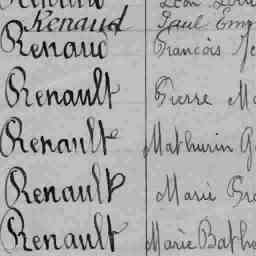 Renaud Paul
Renaud François
Renault Pierre
Renault Mathurin
Renault Marie
Renault Marie